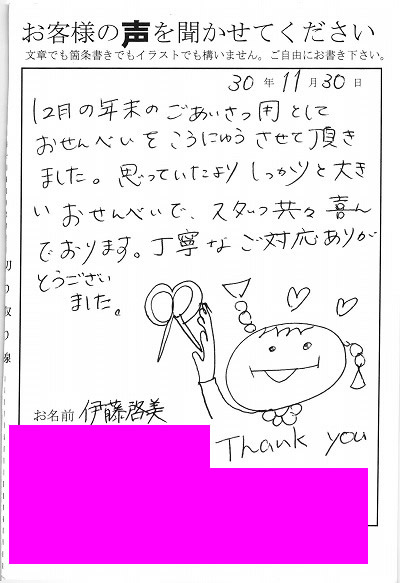 お客様の声を聞かせてください
文章でも箇条書きでもイラストでも構いません。ご自由にお書き下さい。
30年11月30日
12月の年末のごあいさつ用として
おせんべいをこうにゅうさせて頂き
ました。思っていたよりしっかりと大き
いおせんべいで、スタッフ共々喜ん
でおります。丁寧なご対応ありが
とうござい
ました。
切り取り線
お名前 伊藤啓美
Thank you